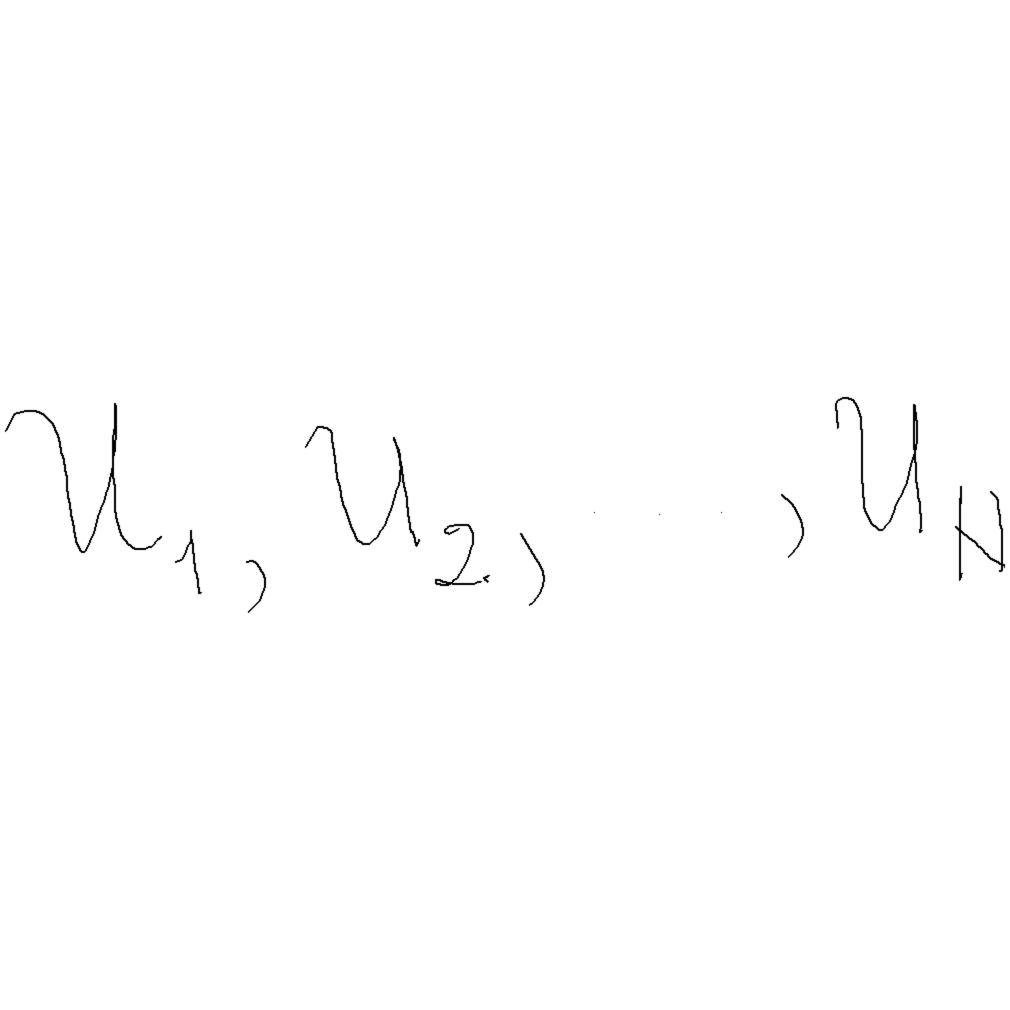 u_1, u_2, ..., u_N